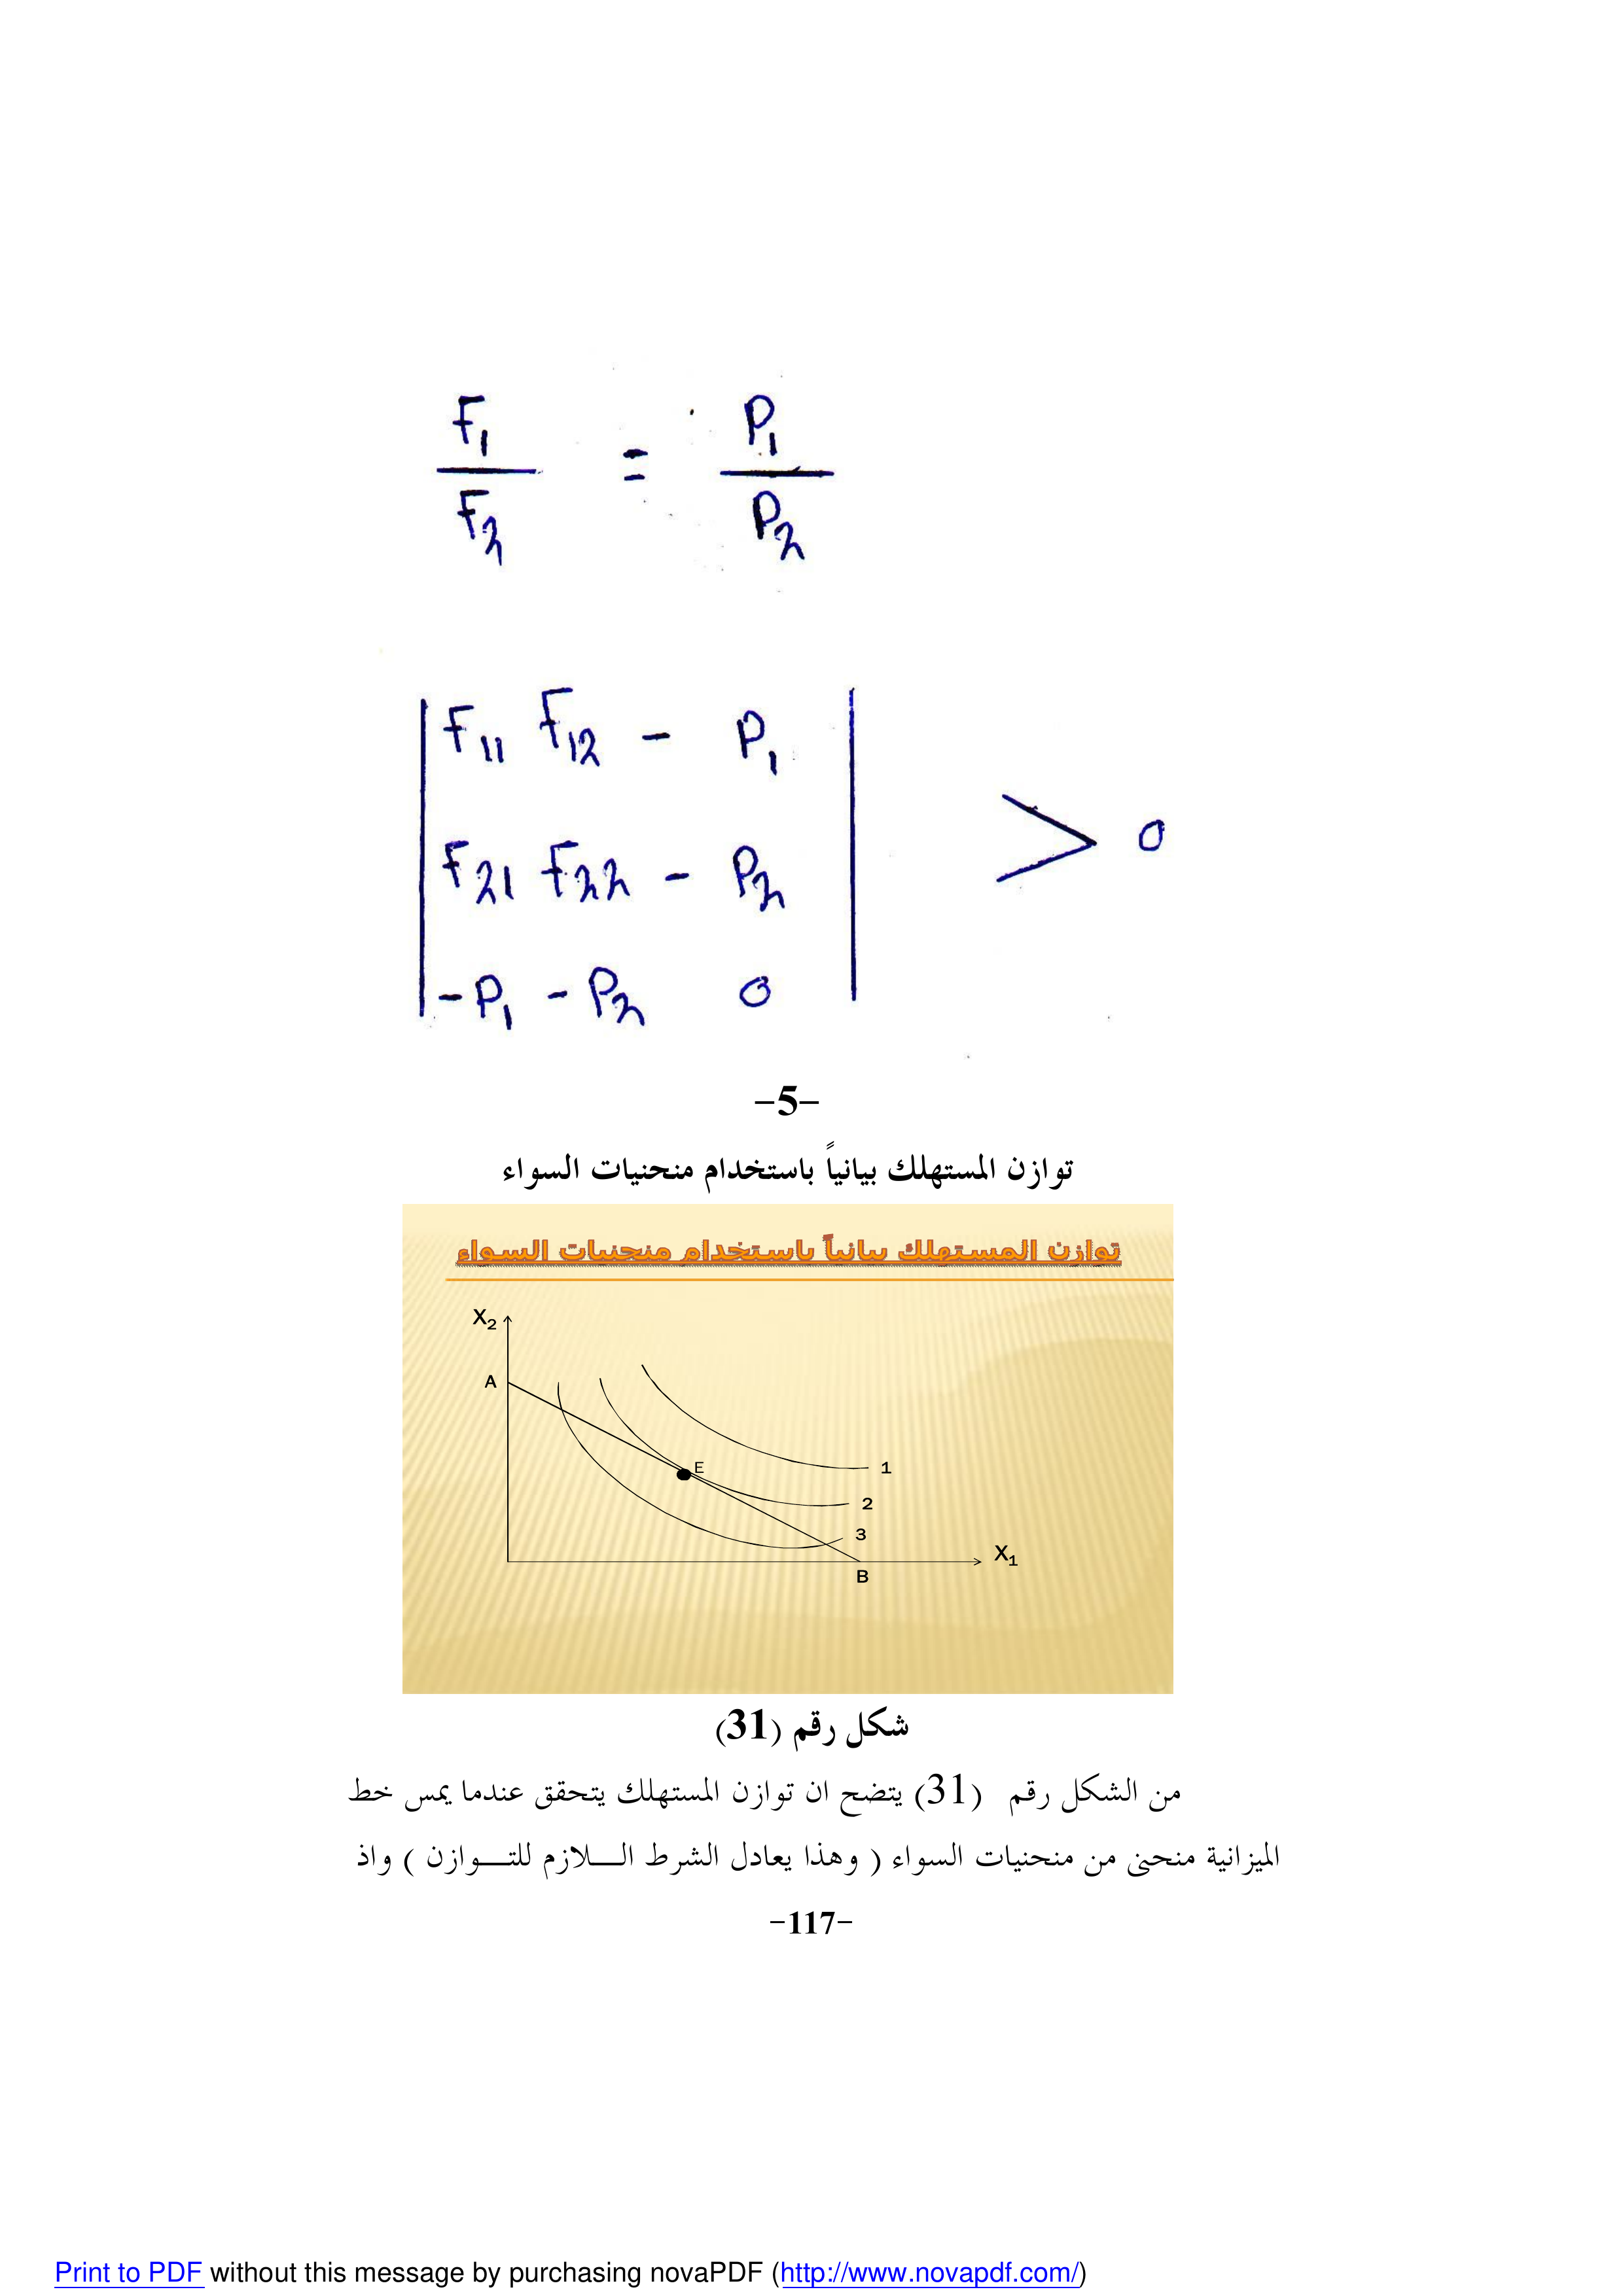 F1 = P1
F2 P2
F11 F12 - P1
F21 F22 - P2 > 0
-P1 - P2 0
-5-
توازن المستهلك بيانياً باستخدام منحنيات السواء
توازن المستهلك بيانياً باستخدام منحنيات السواء
X2
A
E
1
2
3
X1
B
شكل رقم (31)
من الشكل رقم (31) يتضح ان توازن المستهلك يتحقق عندما يمس خط
الميزانية منحنى من منحنيات السواء ( وهذا يعادل الشرط الـــلازم للتـــوازن ) واذ
-117-
Print to PDF without this message by purchasing novaPDF (http://www.novapdf.com/)